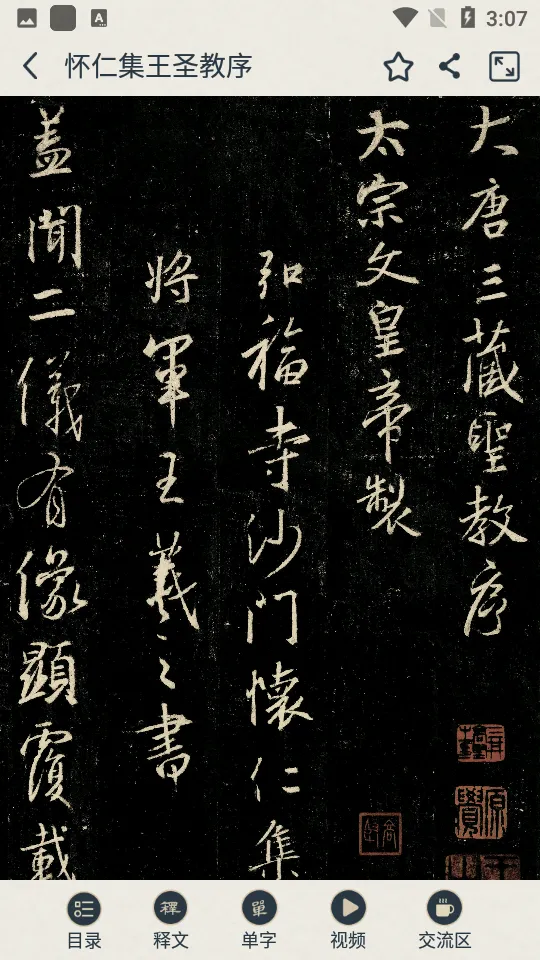 3:07
怀仁集王圣教序
大唐三藏聖教序
太宗文皇帝製
弘福寺沙門懷仁集
將軍王羲之書
蓋聞二儀有像顯覆載
目录
释文
单字
视频
交流区